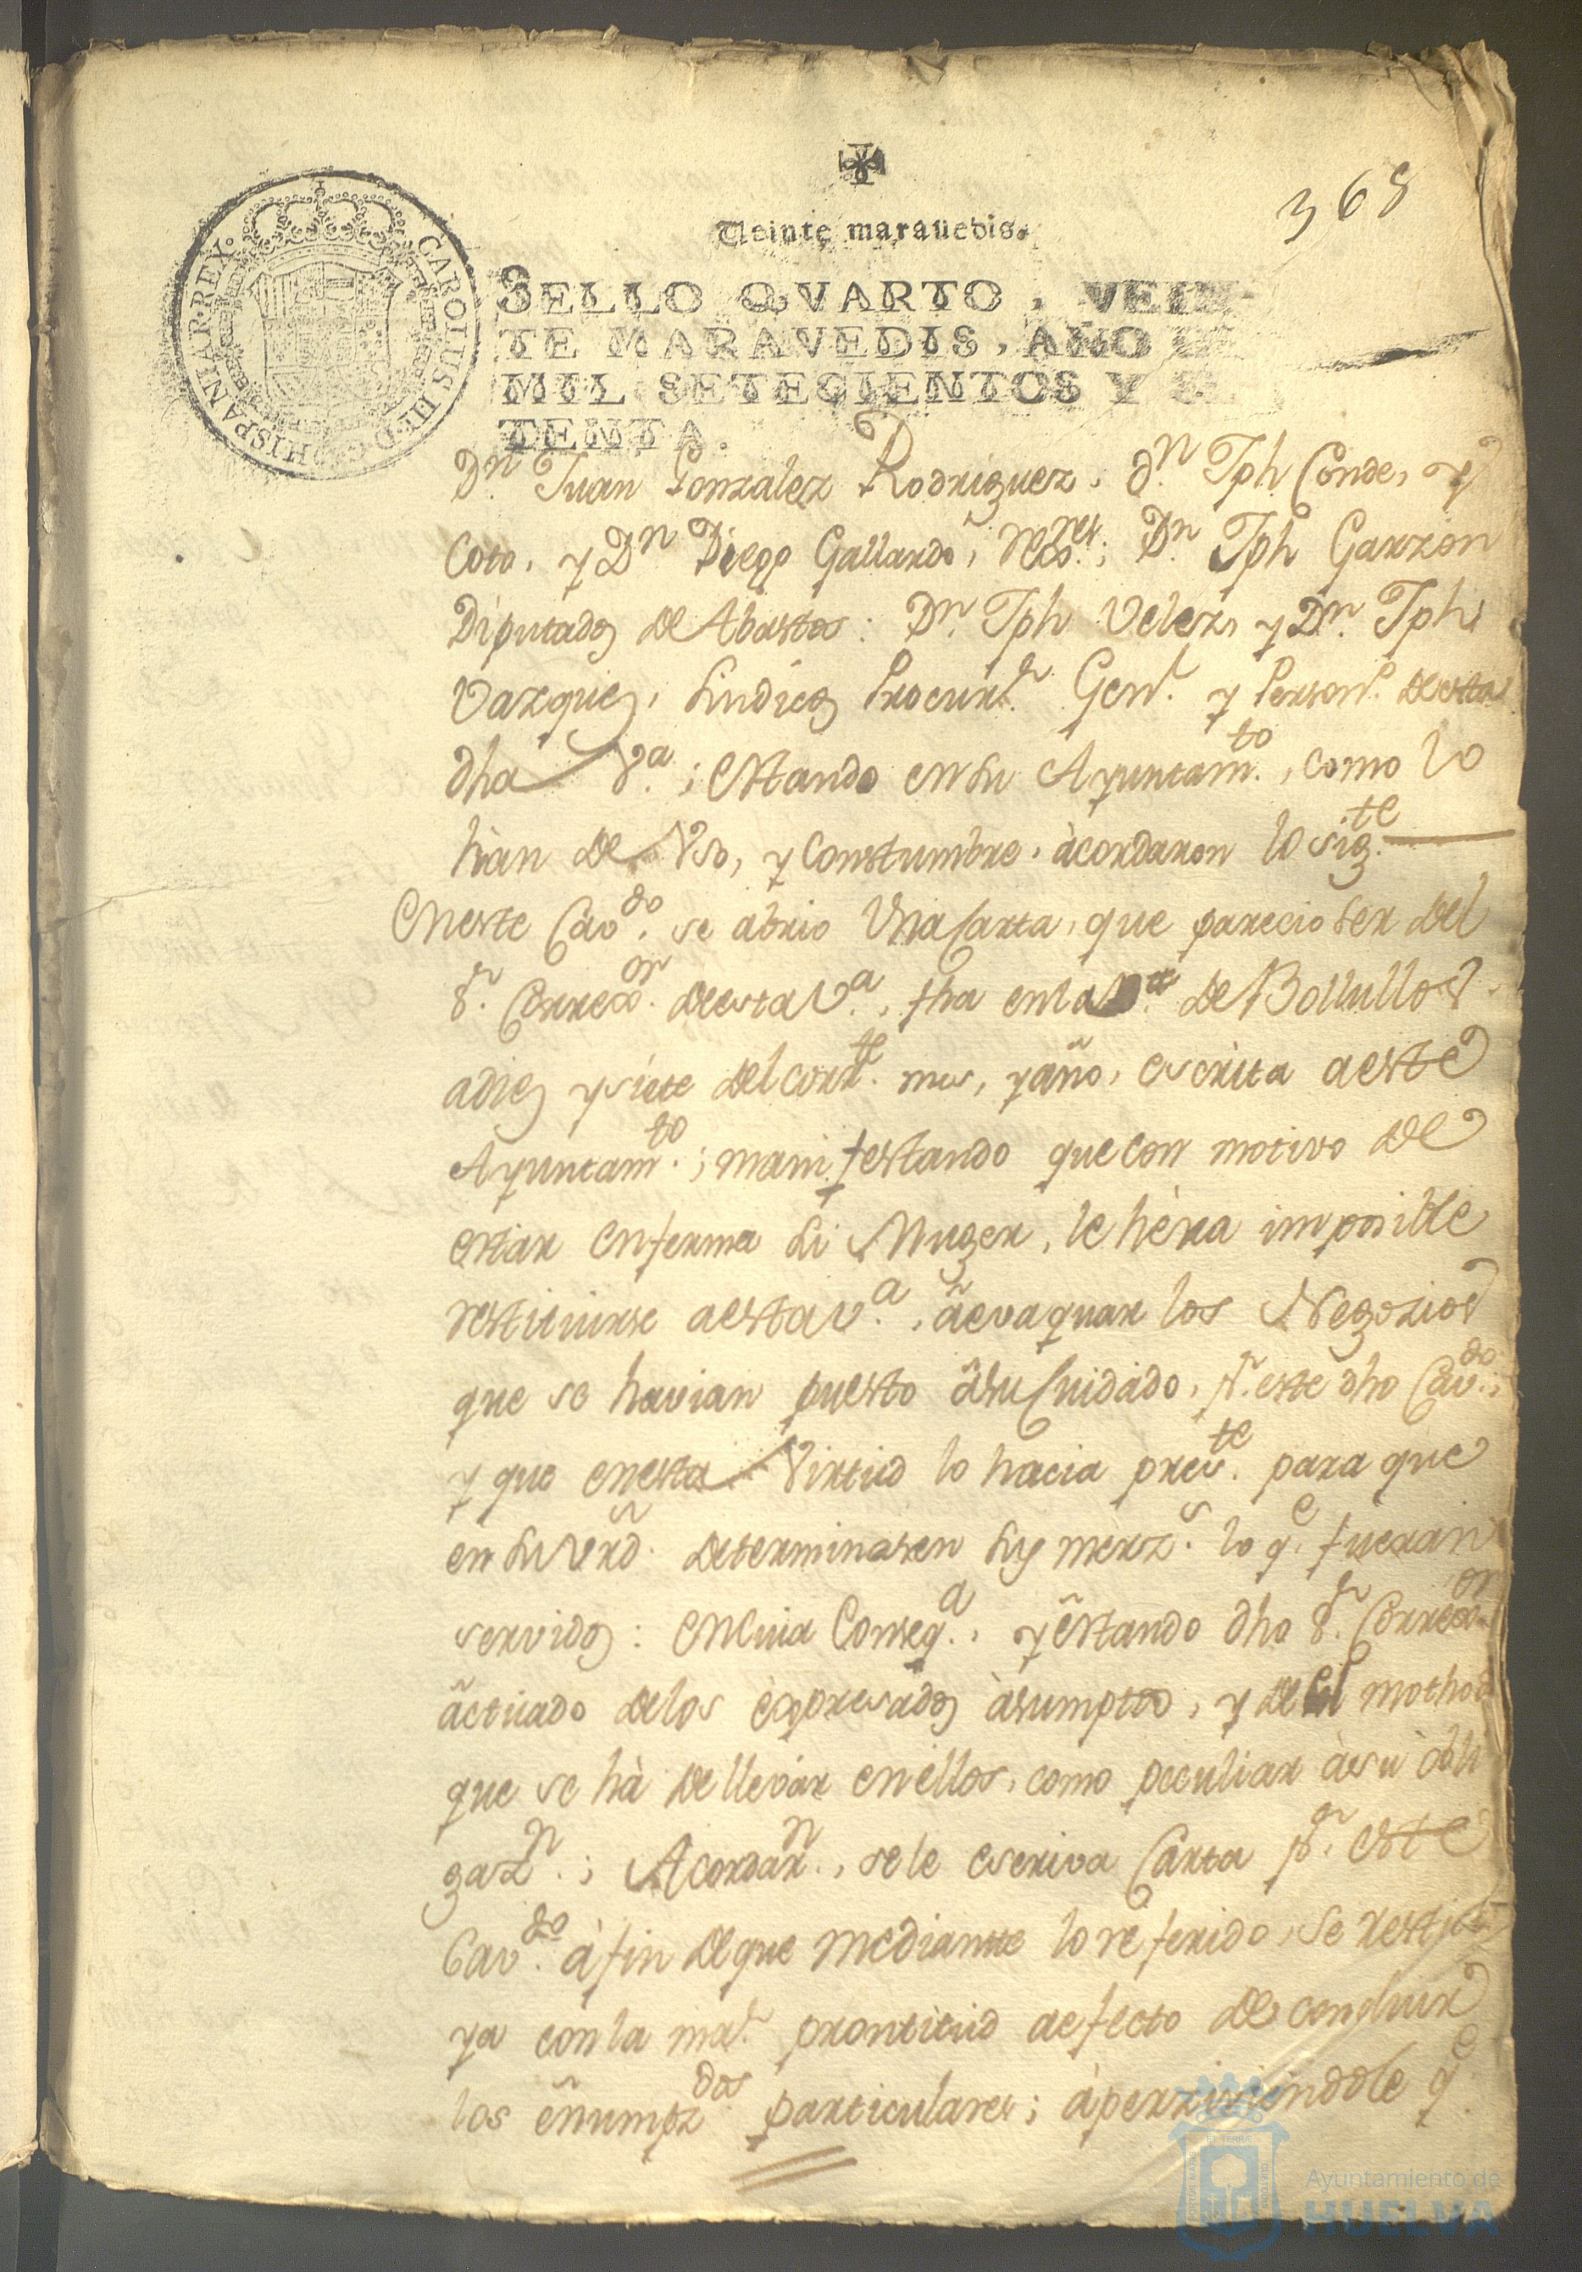 368
Veinte marauedis.
SELLO QVARTO, VEIN
TE MARAVEDIS, AÑO
MIL SETECIENTOS Y
TENTA.
CAROLUS III D G HISPANIAR REX
Dn. Juan Gonzalez Rodriguez, Dn. Jph Conde, y
Coto, y Dn Diego Gallardo, ; Dn Jph Garzon
Diputados de Abastos: Dn. Jph Velez, y Dn. Jph
Vazques, Sindicos Procurr. Genl. y Person.o desta
dha Va.; estando en su Ayuntamto., como lo
hàn de Uso, y Constumbre, àcordaron lo sigte.
en este Cavdo. se abrio Una Carta, que parecio ser del
Sr. Correxor. de esta Va., fha en la Va. de Bollullos
a diez y siete del corrte. mes, y año, escrita a este
Ayuntamto.; manifestando que con motivo de
estar enferma su Muger, le hèra imposible
restituirse a esta Va., à evaquar los Negozios
que se havian puesto à su Cuidado, pr. este dho Cavdo.,
y que en esta Virtud lo hacia preste. para que
en su Vrd. determinasen sus merzs. lo qe. fueran
servidos: en Cuia Conseqa., y estando dho Sr. Correxor
àctuado de los èxpresados àsumptos, y de el method
que se hà de llevar en ellos, como peculiar à su òbli
gazn.; Acordarn., se le escriva Carta pr. este
Cavdo. à fin de que mediantte lo referido, se restitu
ya con la mar. prontitud a efecto de concluir
los ènumpzdos particulares; àperziviendole qe.
Ayuntamiento de
HUELVA